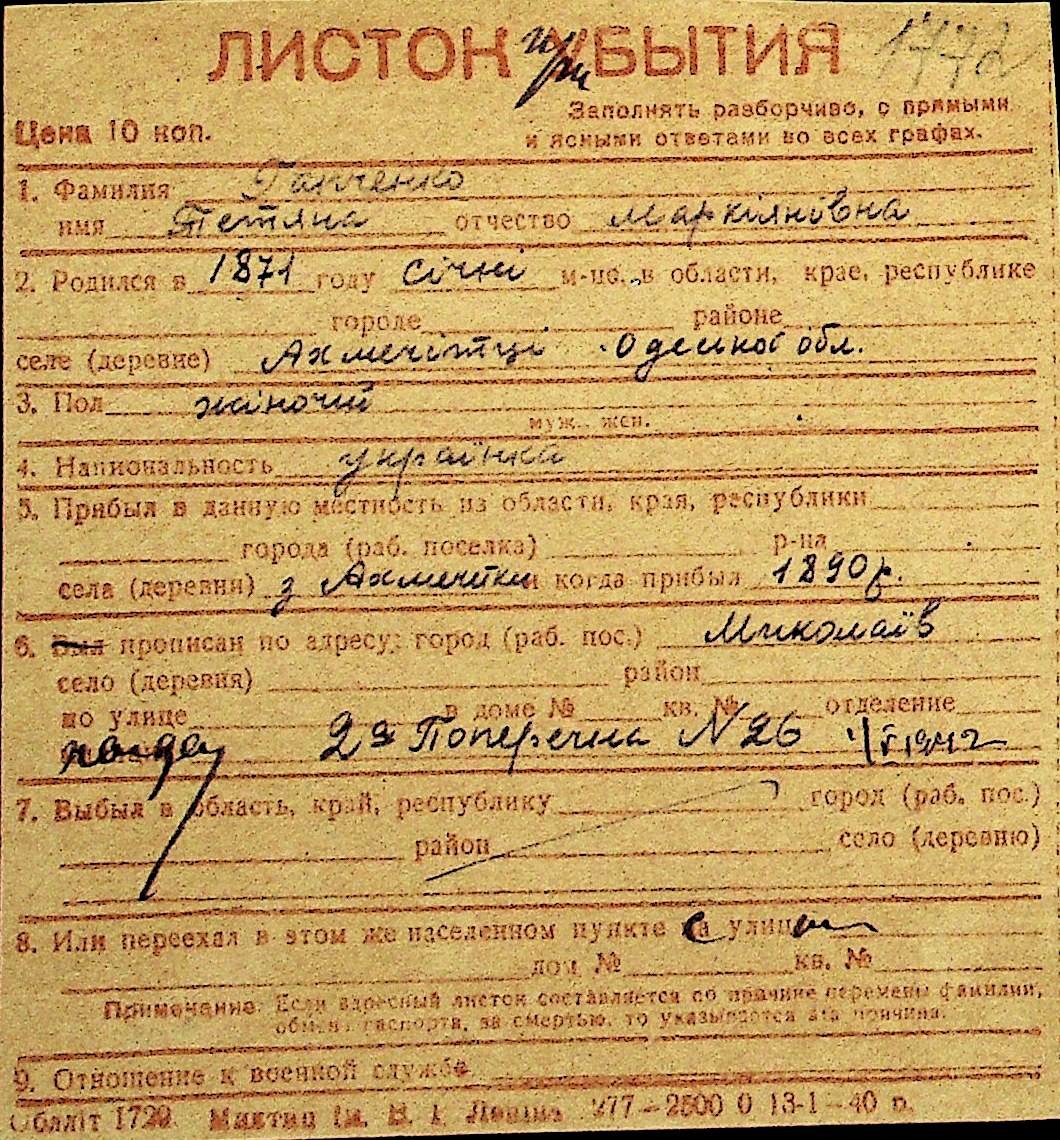 ЛИСТОК при УБЫТИЯ 1772
Заполнять разборчиво, с прямыми
Цена 10 коп. и ясными ответами во всех графах.
1. Фамилия Ганченко
имя Тетяна отчество Маркіянівна
2. Родился в 1871 году січні м-це, в области, крае, республике
городе районе
селе (деревне) Ахмечітці Одеської обл.
3. Пол жіночий
муж., жен.
4. Национальность українка
5. Прибыл в данную местность из области, края, республики
города (раб. поселка) р-на
села (деревни) з Ахмечетки и когда прибыл 1890 р.
6. Был прописан по адресу: город (раб. пос.) Миколаїв
село (деревня) район
по улице в доме № кв. № отделение
2га Поперечна N 26 1942
7. Выбыл в область, край, республику город (раб. пос.)
район село (деревню)
8. Или переехал в этом же населенном пункте с улицы
дом № кв. №
Примечание. Если адресный листок составляется по причине перемены фамилии,
обмена паспорта, за смертью, то указывается эта причина.
9. Отношение к военной службе
Обллiт 1729. Ім. В. І. Леніна 277—2500 0 13-1—40 р.